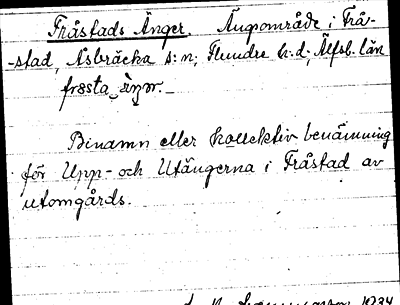 Fråstads Änger. Ängsområde i Frå-
-stad, Åsbräcka s:n; Flundre h.d; Älfsb. län
fræsta æŋǝr.
Binamn eller kollektiv benämning
för Upp- och Utängerna i Fråstad av
utomgårds.
1934